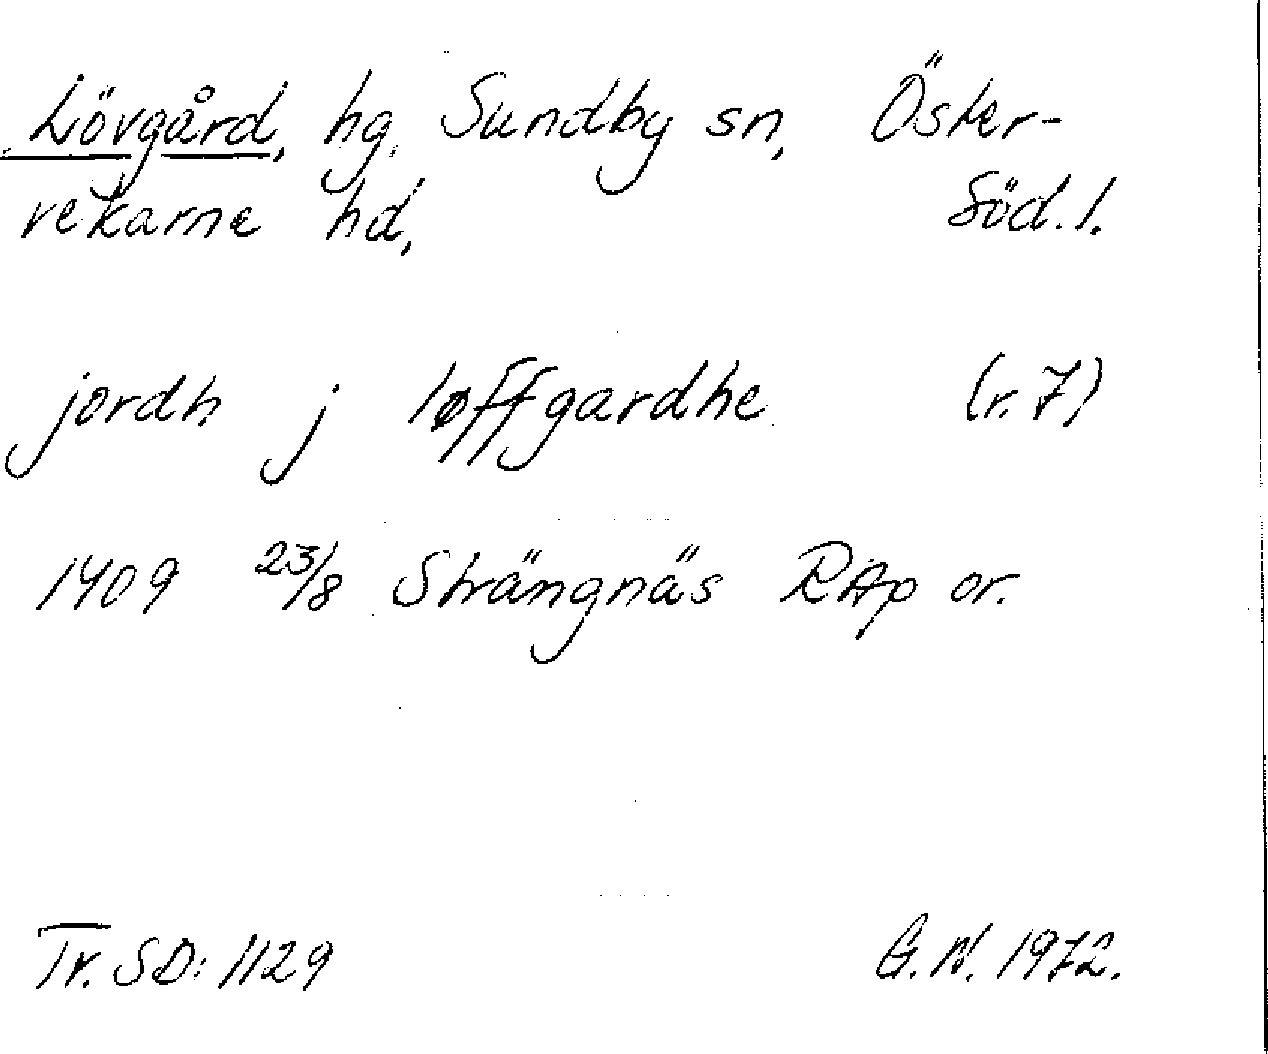 Lövgård, hg, Sundby sn, Öster-
rekarne hd, Söd.l.
jordh j løffgardhe (r. 7)
1409 23/8 Strängnäs RAp or.
Tr. SD: 1129 G.N. 1972.